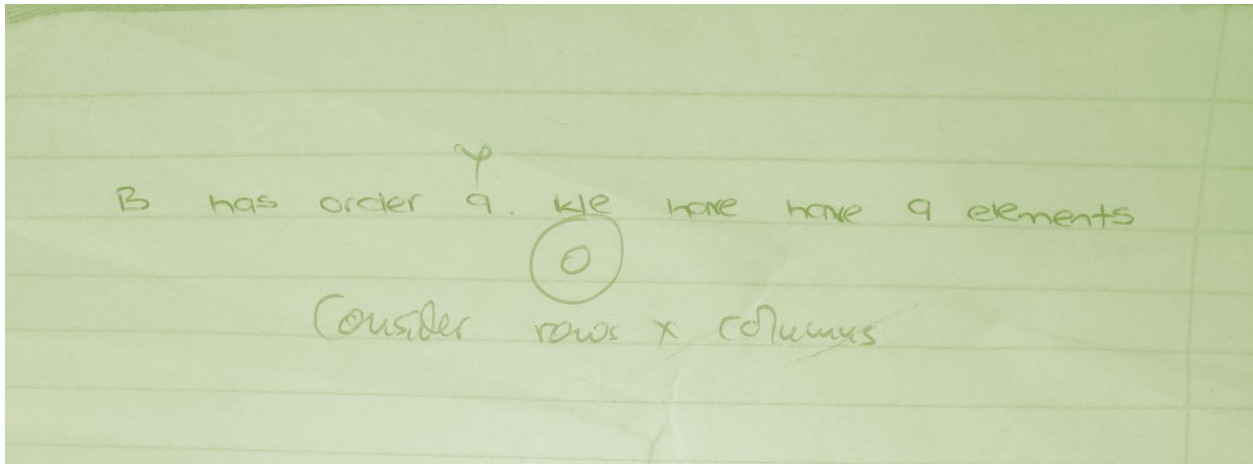 B has order 9. We have have 9 elements
0
Consider rows x columns